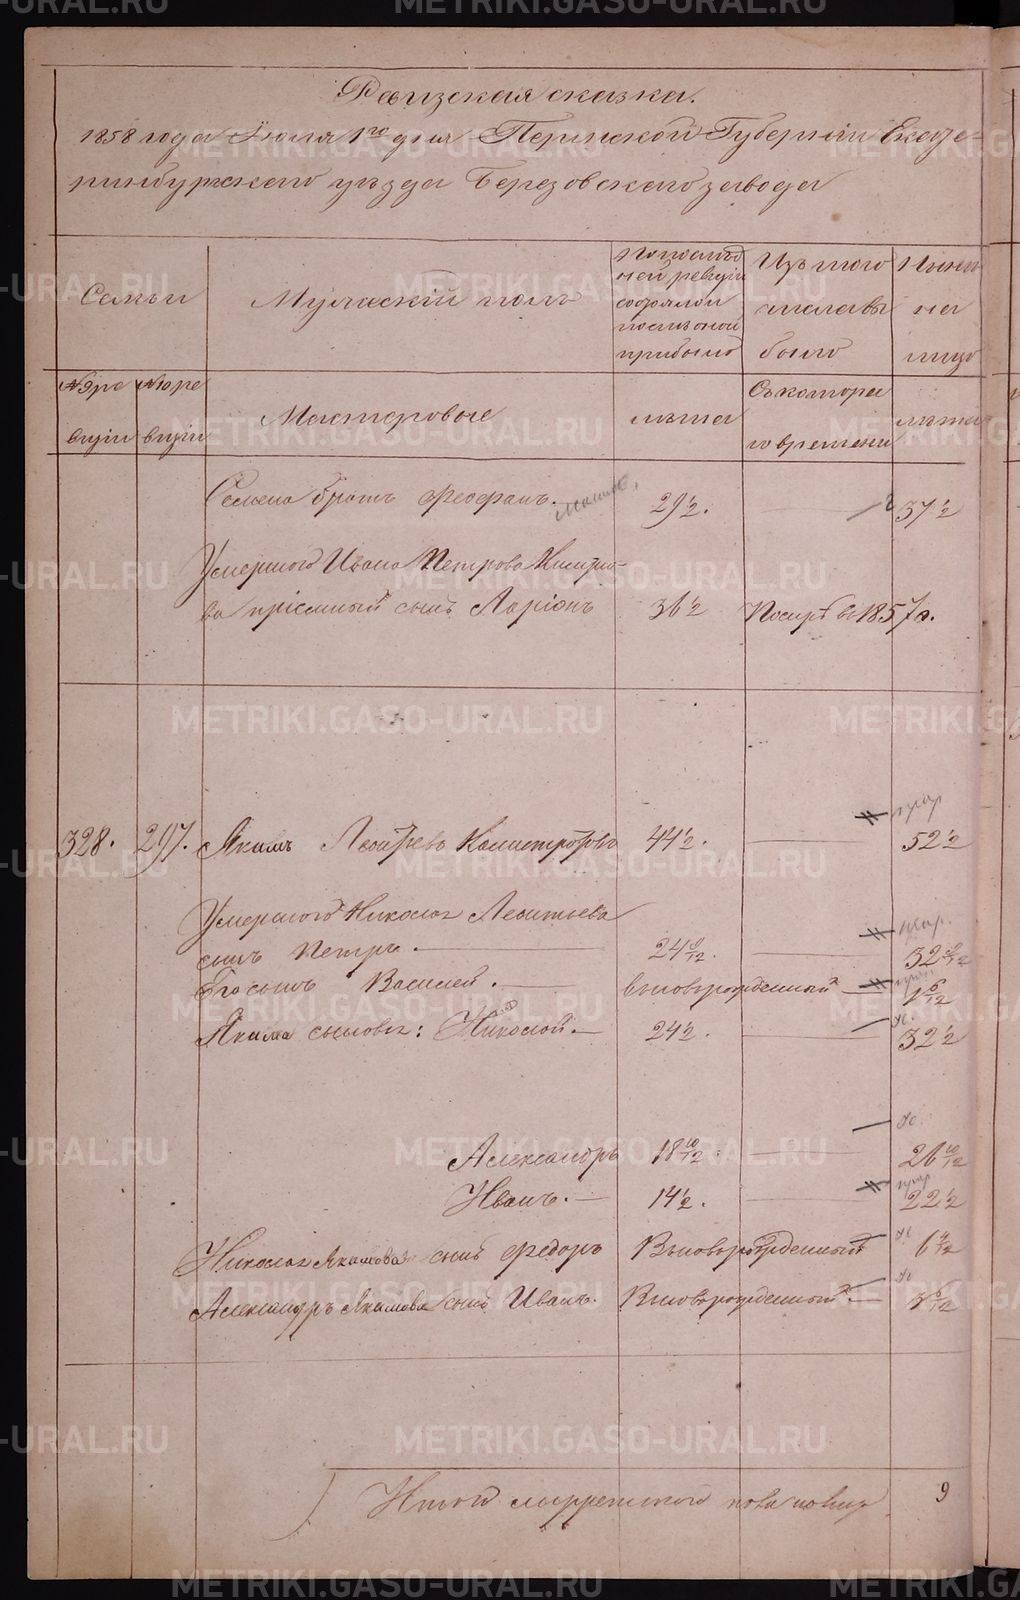 METRIKI.GASO-URAL.RU
Ревизская сказка.
1858 года Июня 1го дня Пермской Губернии Екате-
ринбургскаго уезда Березовскаго завода
Семьи
Мужескій полъ
По послѣд
ней ревизіи
состояло и
после оной
прибыло
Изъ того
числа вы
было
Ныне
на
лицо
№ 9 ре
визіи
№ 10 ре
визіи
Мастеровые
лѣта
Съ котора
го времени
лѣта
Семена братъ Феофанъ.
29½.
37½
Умершаго Ивана Петрова Калистра-
ва пріемный сынъ Ларіонъ
36½
Помръ въ 1857 г.
328.
297.
Якимъ Леонтьевъ Калистратовъ
44½.
52½
Умершаго Николая Леонтьева
сынъ Петръ.
24 8/12.
32 8/12
Его сынъ Василей.
вновьрожденный
1 6/12
Якима сыновья: Николай.
24½.
32½
Александръ
18 10/12.
26 10/12
Иванъ.
14½.
22½
Николая Якимова сынъ Федоръ
Вновьрожденный
6 4/12
Александръ Якимова сынъ Иванъ.
Вновьрожденный
3 6/12
Итого мужескаго пола на лицо
9